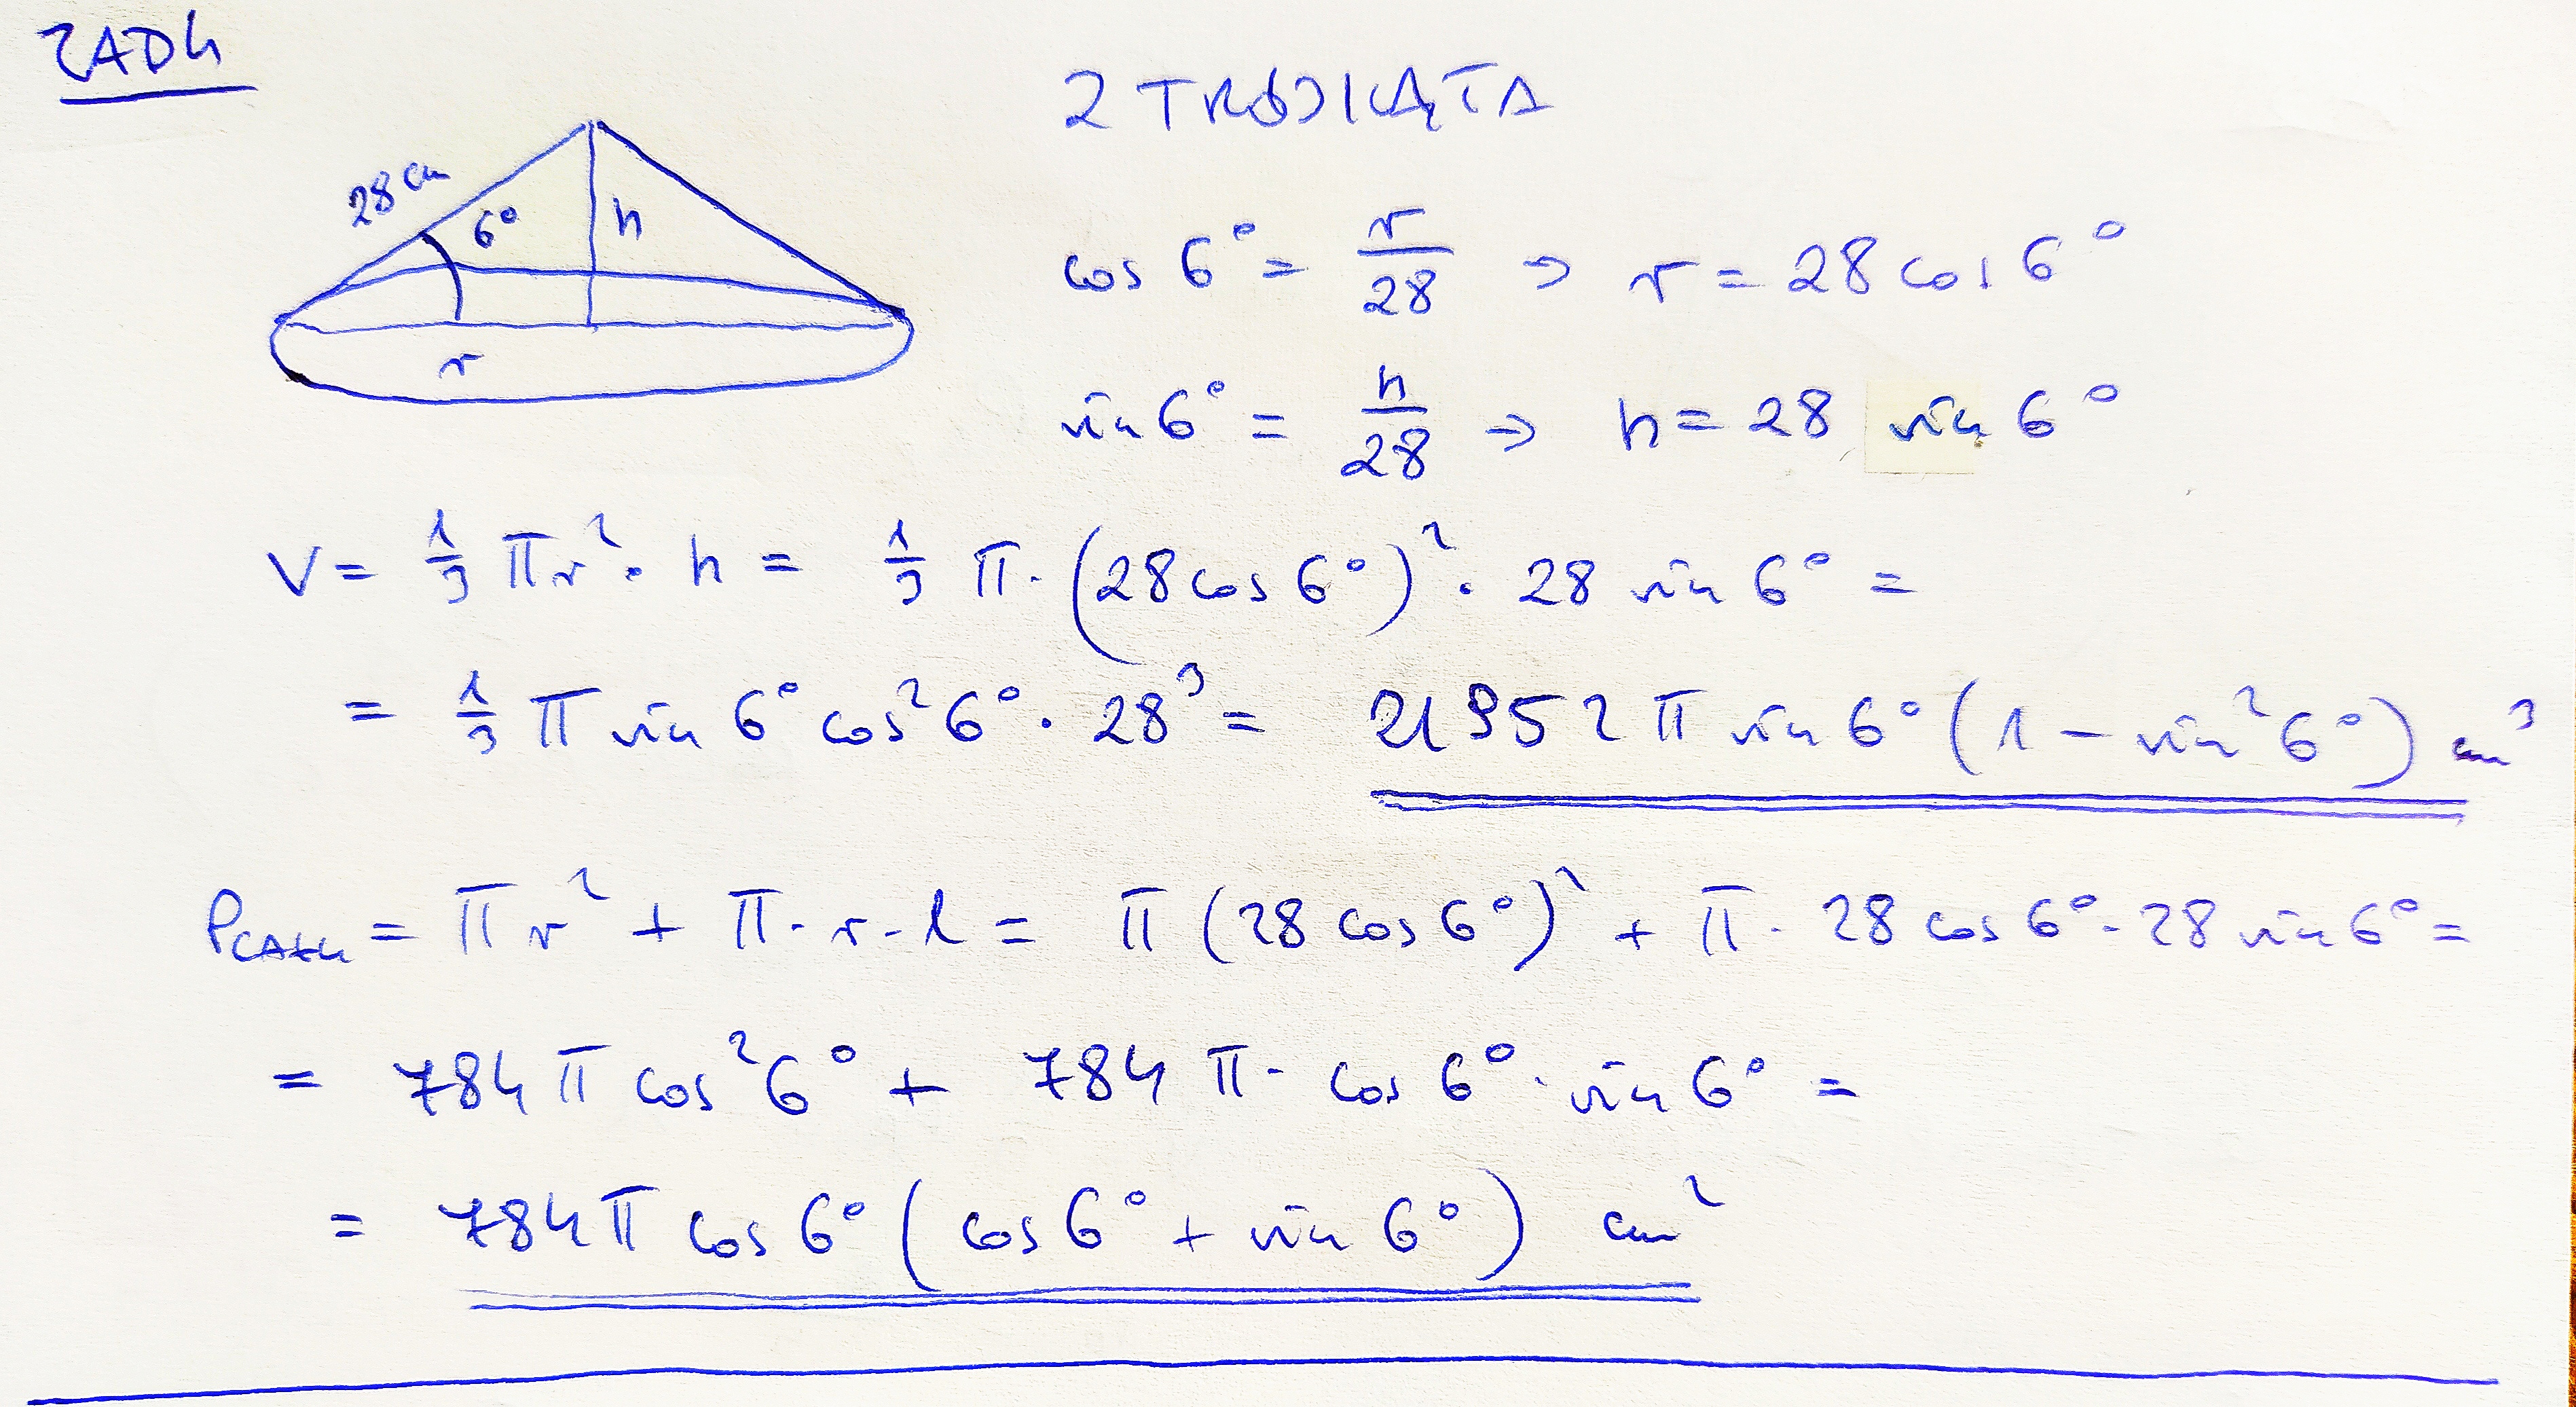 ZAD4
Z TRÓJKĄTA
28 cm
6°
h
r
cos 6° = r/28 => r = 28 cos 6°
sin 6° = h/28 => h = 28 sin 6°
V = 1/3 π r² · h = 1/3 π · (28 cos 6°)² · 28 sin 6° =
= 1/3 π sin 6° cos² 6° · 28³ = 21952 π sin 6° (1 − sin² 6°) cm³
PCAŁK = π r² + π · r · l = π (28 cos 6°)² + π · 28 cos 6° · 28 sin 6° =
= 784 π cos² 6° + 784 π · cos 6° · sin 6° =
= 784 π cos 6° (cos 6° + sin 6°) cm²